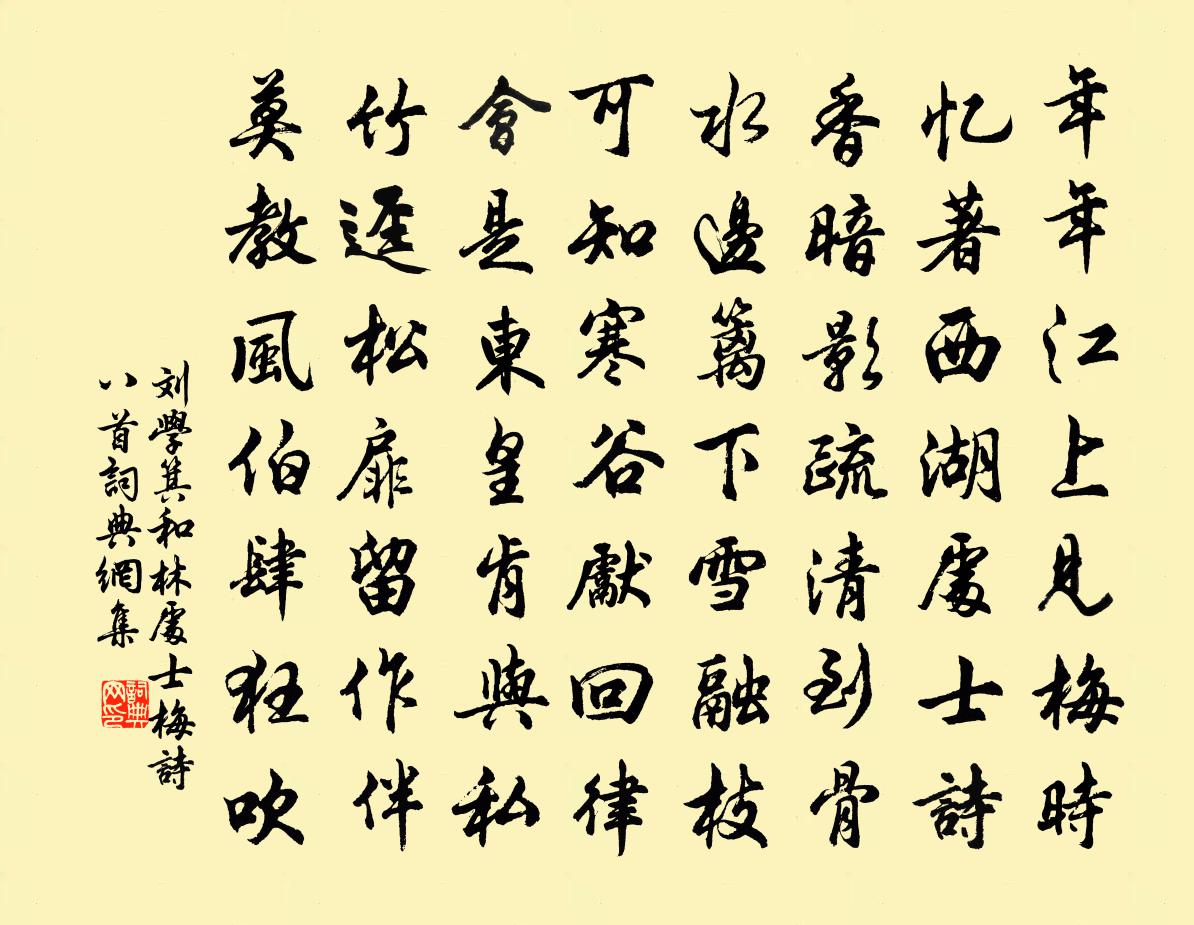 年年江上見梅時
忆著西湖處士詩
香暗影疏清到骨
水邊篱下雪融枝
可知寒谷獻回律
會是東皇肯與私
竹逕松扉留作伴
莫教風伯肆狂吹
刘學箕和林處士梅詩
八首詞典網集
詞典
网印